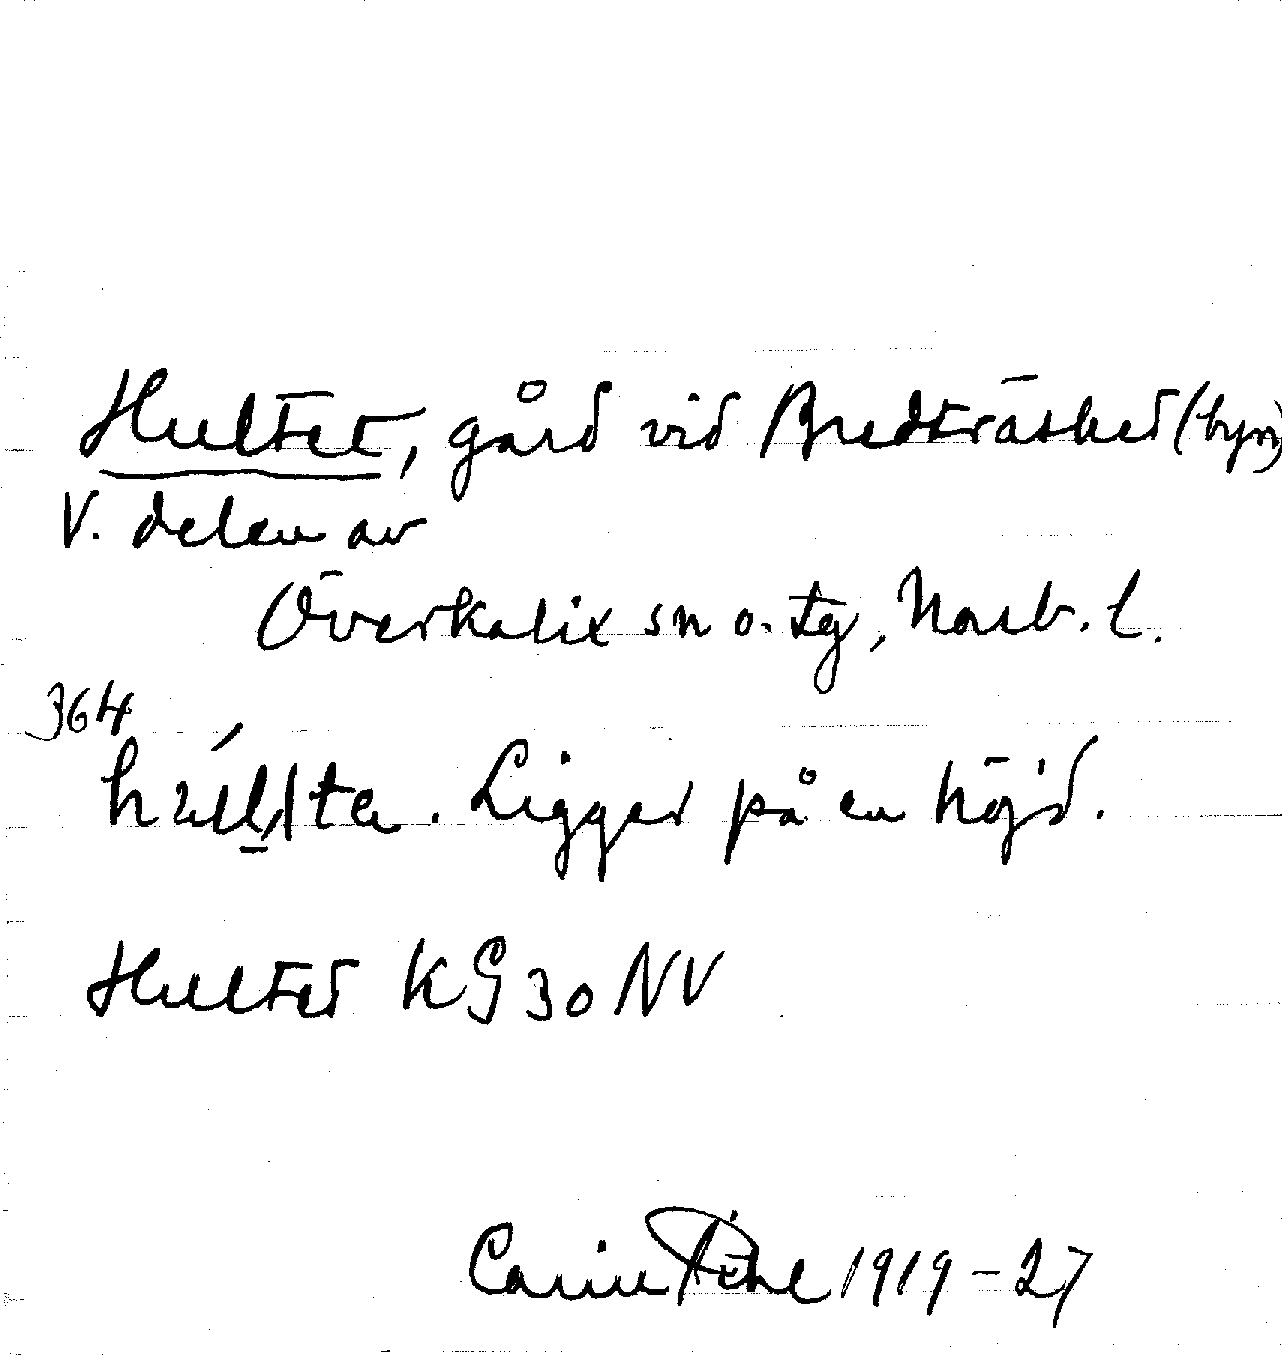 Hultet, gård vid Bredträsket (byn)
V. delen av
Överkalix sn o. tg, Norrb. l.
364
húll̠lta. Ligger på en höjd.
Hultet KG 30 NV
Carin Pihl 1919-27